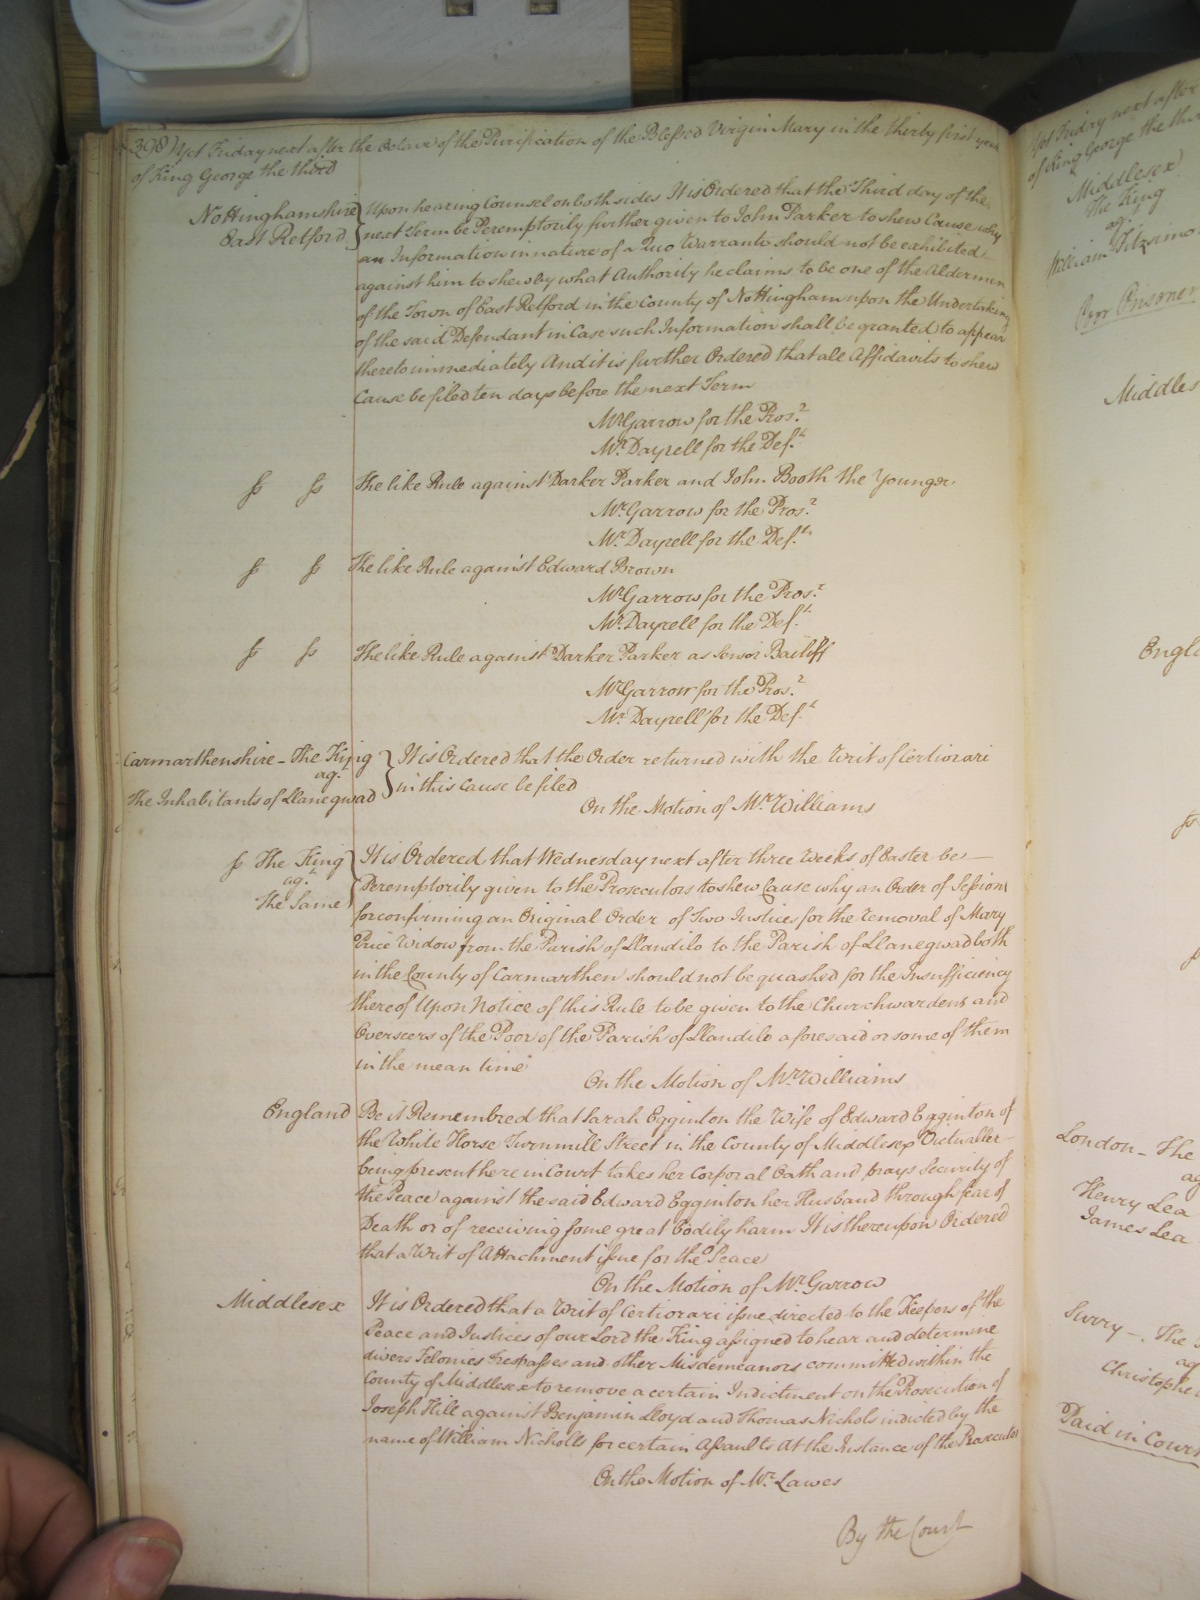 398 Yet Friday next after the Octave of the Purification of the Blessed Virgin Mary in the thirty first year
of King George the third
Nottinghamshire
East Retford
Upon hearing Counsel on both sides It is Ordered that the Third day of the
next Term be Peremptorily further given to John Parker to shew Cause why
an Information in nature of a Quo Warranto should not be exhibited
against him to shew by what Authority he claims to be one of the Aldermen
of the Town of East Retford in the County of Nottingham upon the Undertaking
of the said Defendant in Case such Information shall be granted to appear
thereto immediately And it is further Ordered that all Affidavits to shew
Cause be filed ten days before the next Term
Mr Garrow for the Pros.r
Mr. Dayrell for the Def.t
The like Rule against Darker Parker and John Booth the Younger
Mr Garrow for the Pros.r
Mr. Dayrell for the Def.t
The like Rule against Edward Brown
Mr Garrow for the Pros.r
Mr. Dayrell for the Def.t
The like Rule against Darker Parker as Senior Bailiff
Mr Garrow for the Pros.r
Mr. Dayrell for the Def.t
Carmarthenshire - The King
ag.t
The Inhabitants of Llanegwad
It is Ordered that the Order returned with the Writ of Certiorari
in this Cause be filed
On the Motion of Mr. Williams
The King
ag.t
The Same
It is Ordered that Wednesday next after three Weeks of Easter be
Peremptorily given to the Prosecutors to shew Cause why an Order of Sessions
for confirming an Original Order of Two Justices for the removal of Mary
Price Widow from the Parish of Llandilo to the Parish of Llanegwad both
in the County of Carmarthen should not be quashed for the Insufficiency
thereof Upon Notice of this Rule to be given to the Churchwardens and
Overseers of the Poor of the Parish of Llandilo aforesaid or some of them
in the mean time
On the Motion of Mr. Williams
England
Be it Remembred that Sarah Egginton the Wife of Edward Egginton of
the White Horse Turnmill Street in the County of Middlesex Victualler
being present here in Court takes her Corporal Oath and prays Security of
the Peace against the said Edward Egginton her Husband through fear of
Death or of receiving some great bodily harm It is thereupon Ordered
that a Writ of Attachment issue for the Peace
On the Motion of Mr. Garrow
Middlesex
It is Ordered that a Writ of Certiorari issue directed to the Keepers of the
Peace and Justices of our Lord the King assigned to hear and determine
divers Felonies trespasses and other Misdemeanors committed within the
County of Middlesex to remove a certain Indictment on the Prosecution of
Joseph Hill against Benjamin Lloyd and Thomas Nichols indicted by the
name of William Nicholls for certain Assaults At the Instance of the Prosecutor
On the Motion of Mr. Lawes
By the Court
Yet Friday next after
of King George the thi
Middlesex
The King
ag.t
William Fitzsimo
Prisoner
Middles
Engla
London - The
ag
Henry Lea
James Lea
Surry - The
ag
Christopher
Paid in Court